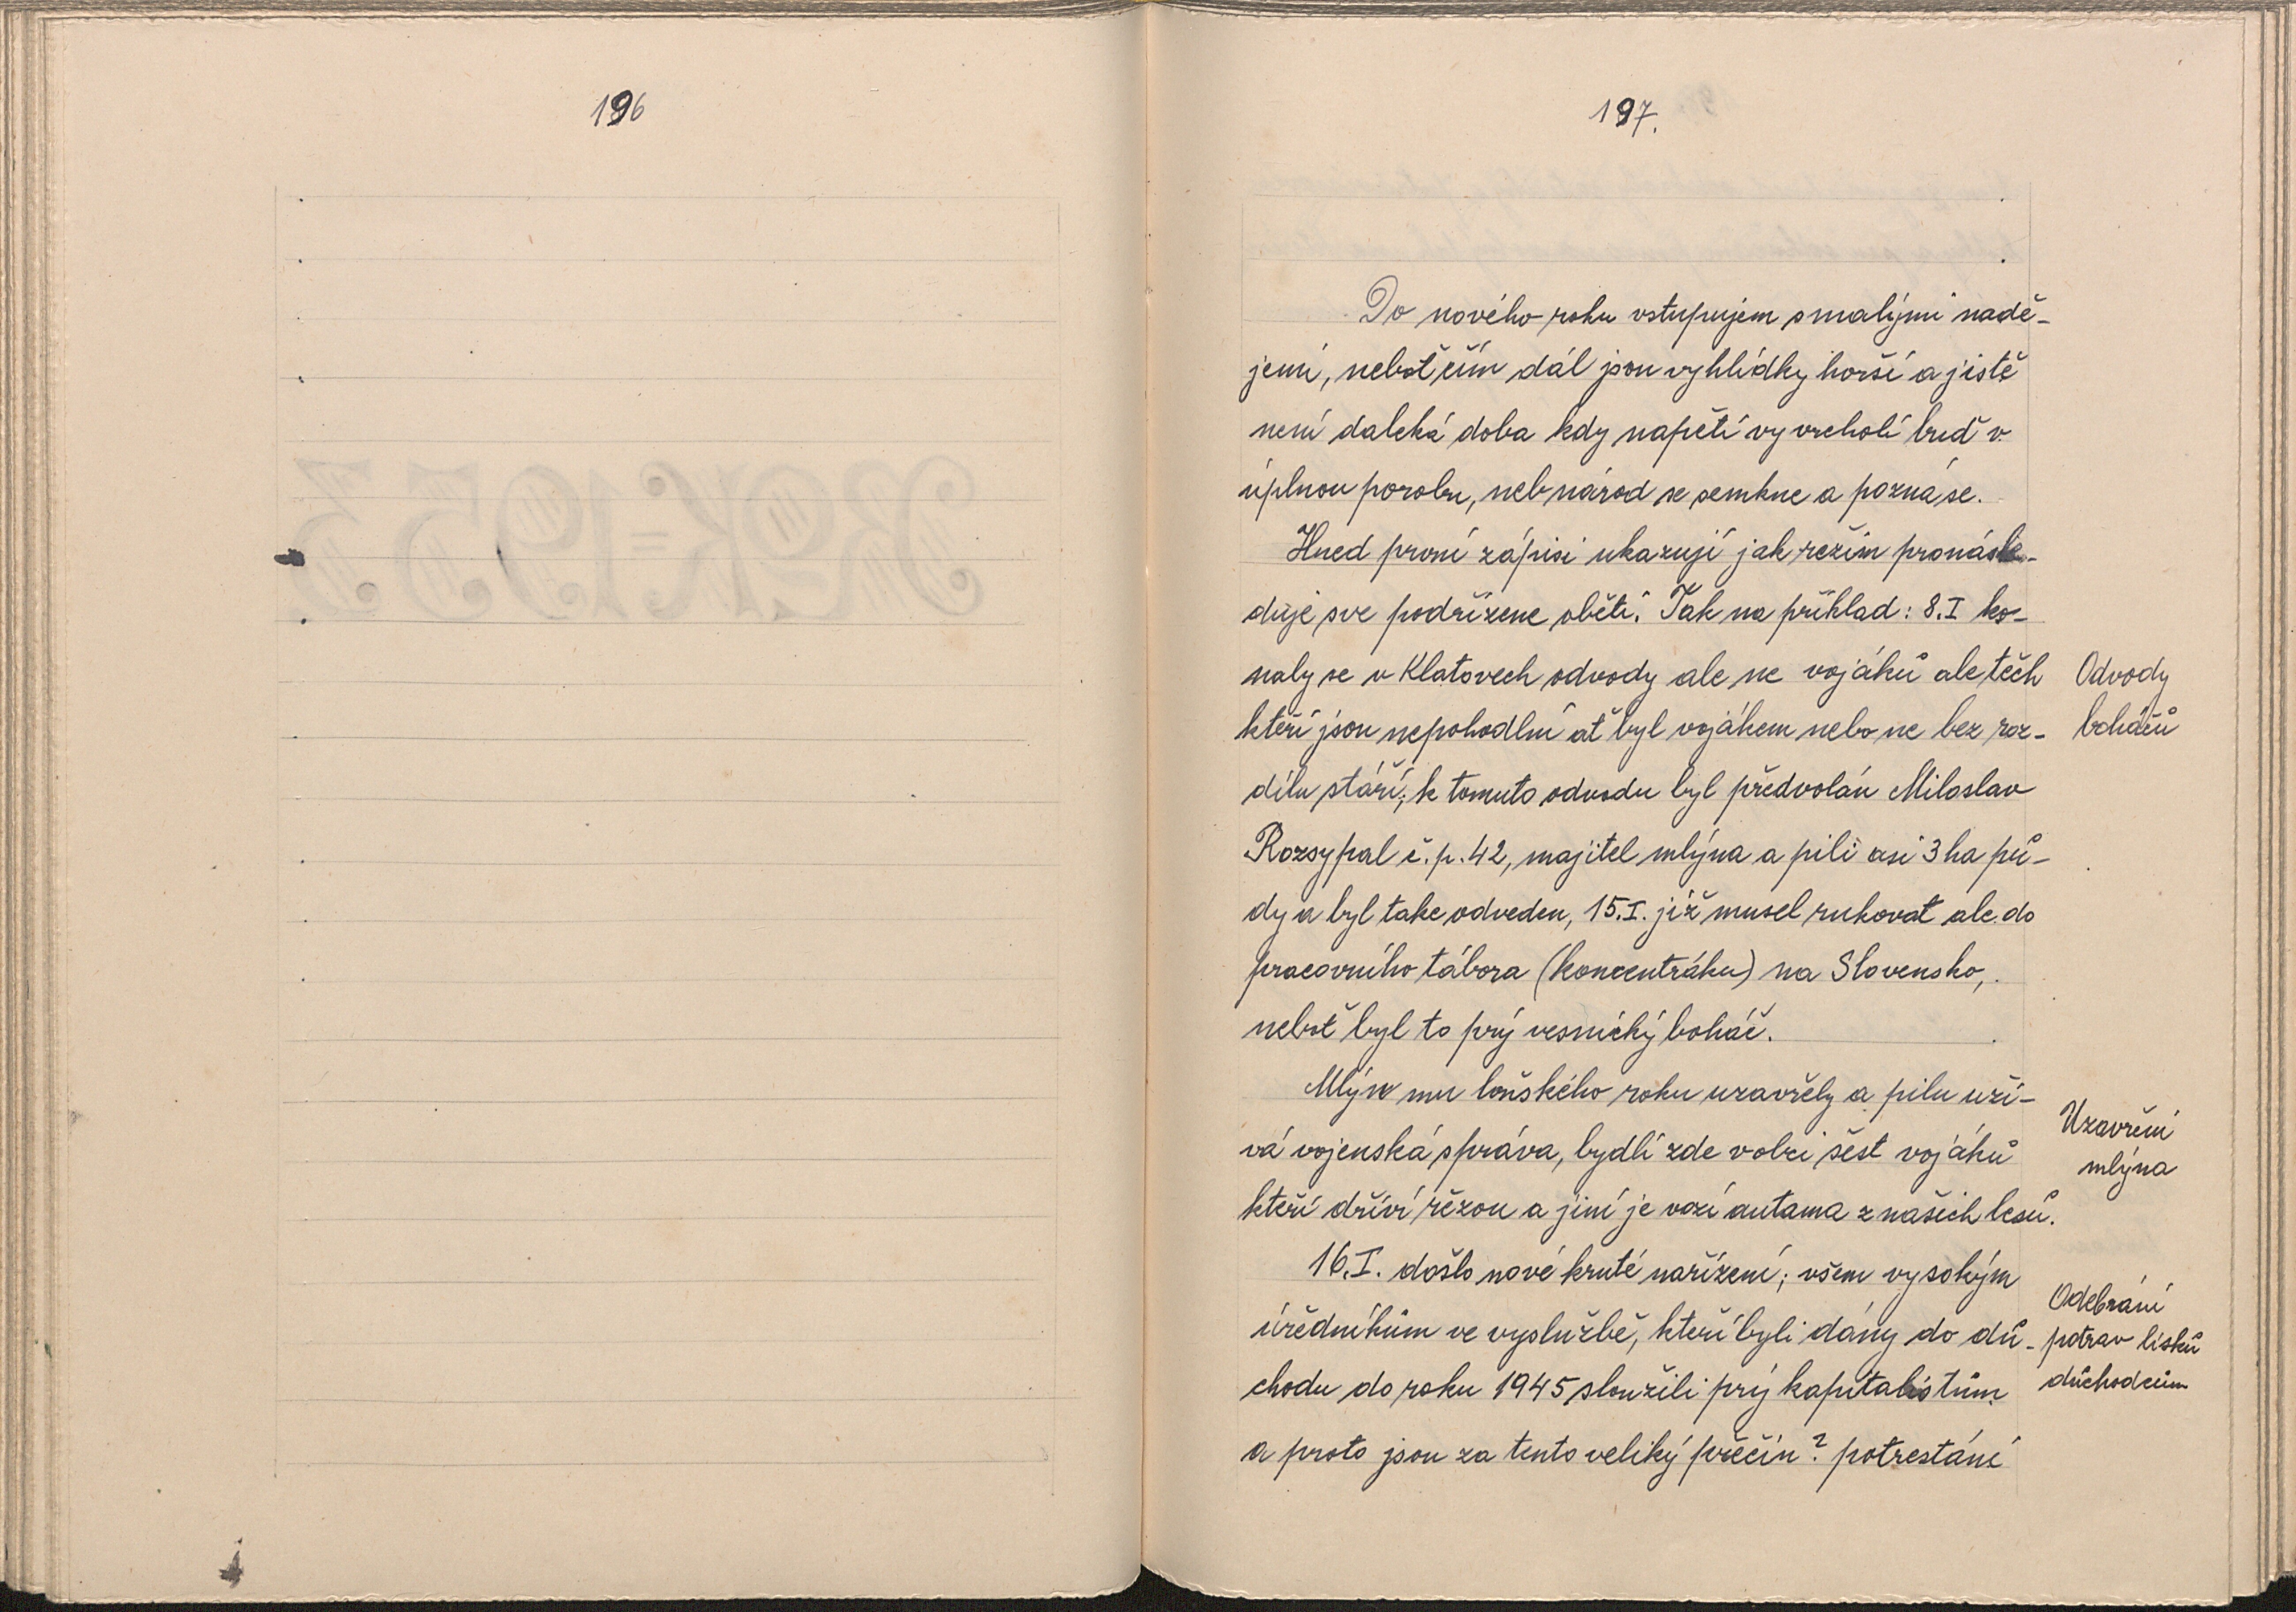 196
197.
Do nového roku vstupujem s malými nadě-
jemi, neboť čím dál jsou vyhlídky horší a jistě
není daleká doba kdy napětí vyvrcholí buď v
úplnou porobu, neb národ se semkne a pozná se.
Hned první zápisi ukazují jak režim pronásle-
duje sve podřízene oběti. Tak na příklad: 8.I ko-
naly se v Klatovech odvody ale ne vojáků ale těch
Odvody
kteří jsou nepohodlní ať byl vojákem nebo ne bez roz-
boháčů
dílu stáří; k tomuto odvodu byl předvolán Miloslav
Rozsypal č.p. 42, majitel mlýna a pili asi 3 ha pů-
dy a byl take odveden, 15.I. již musel rukovat ale do
pracovního tábora (koncentráku) na Slovensko,
neboť byl to prý vesnický boháč.
Mlýn mu loňského roku uzavřely a pilu uží-
Uzavření
vá vojenská správa, bydlí zde volci šest vojáků
mlýna
kteří dříví řězou a jiní je vozí autama z našich lesů.
16.I. došlo nové kruté nařízení; všem vysokým
Odebrání
úředníkům ve vyslužbě, kteří byli dány do dů-
potrav lísků
chodu do roku 1945 sloužili prý kapitalistům
důchodcům
a proto jsou za tento veliký přečin? potrestání